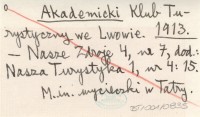 Akademicki Klub Tu-
rystyczny we Lwowie. 1913.
– Nasze Zdroje 4, nr 7, dod.:
Nasza Turystyka 1, nr 4: 15.
M. in. wycieczki w Tatry.